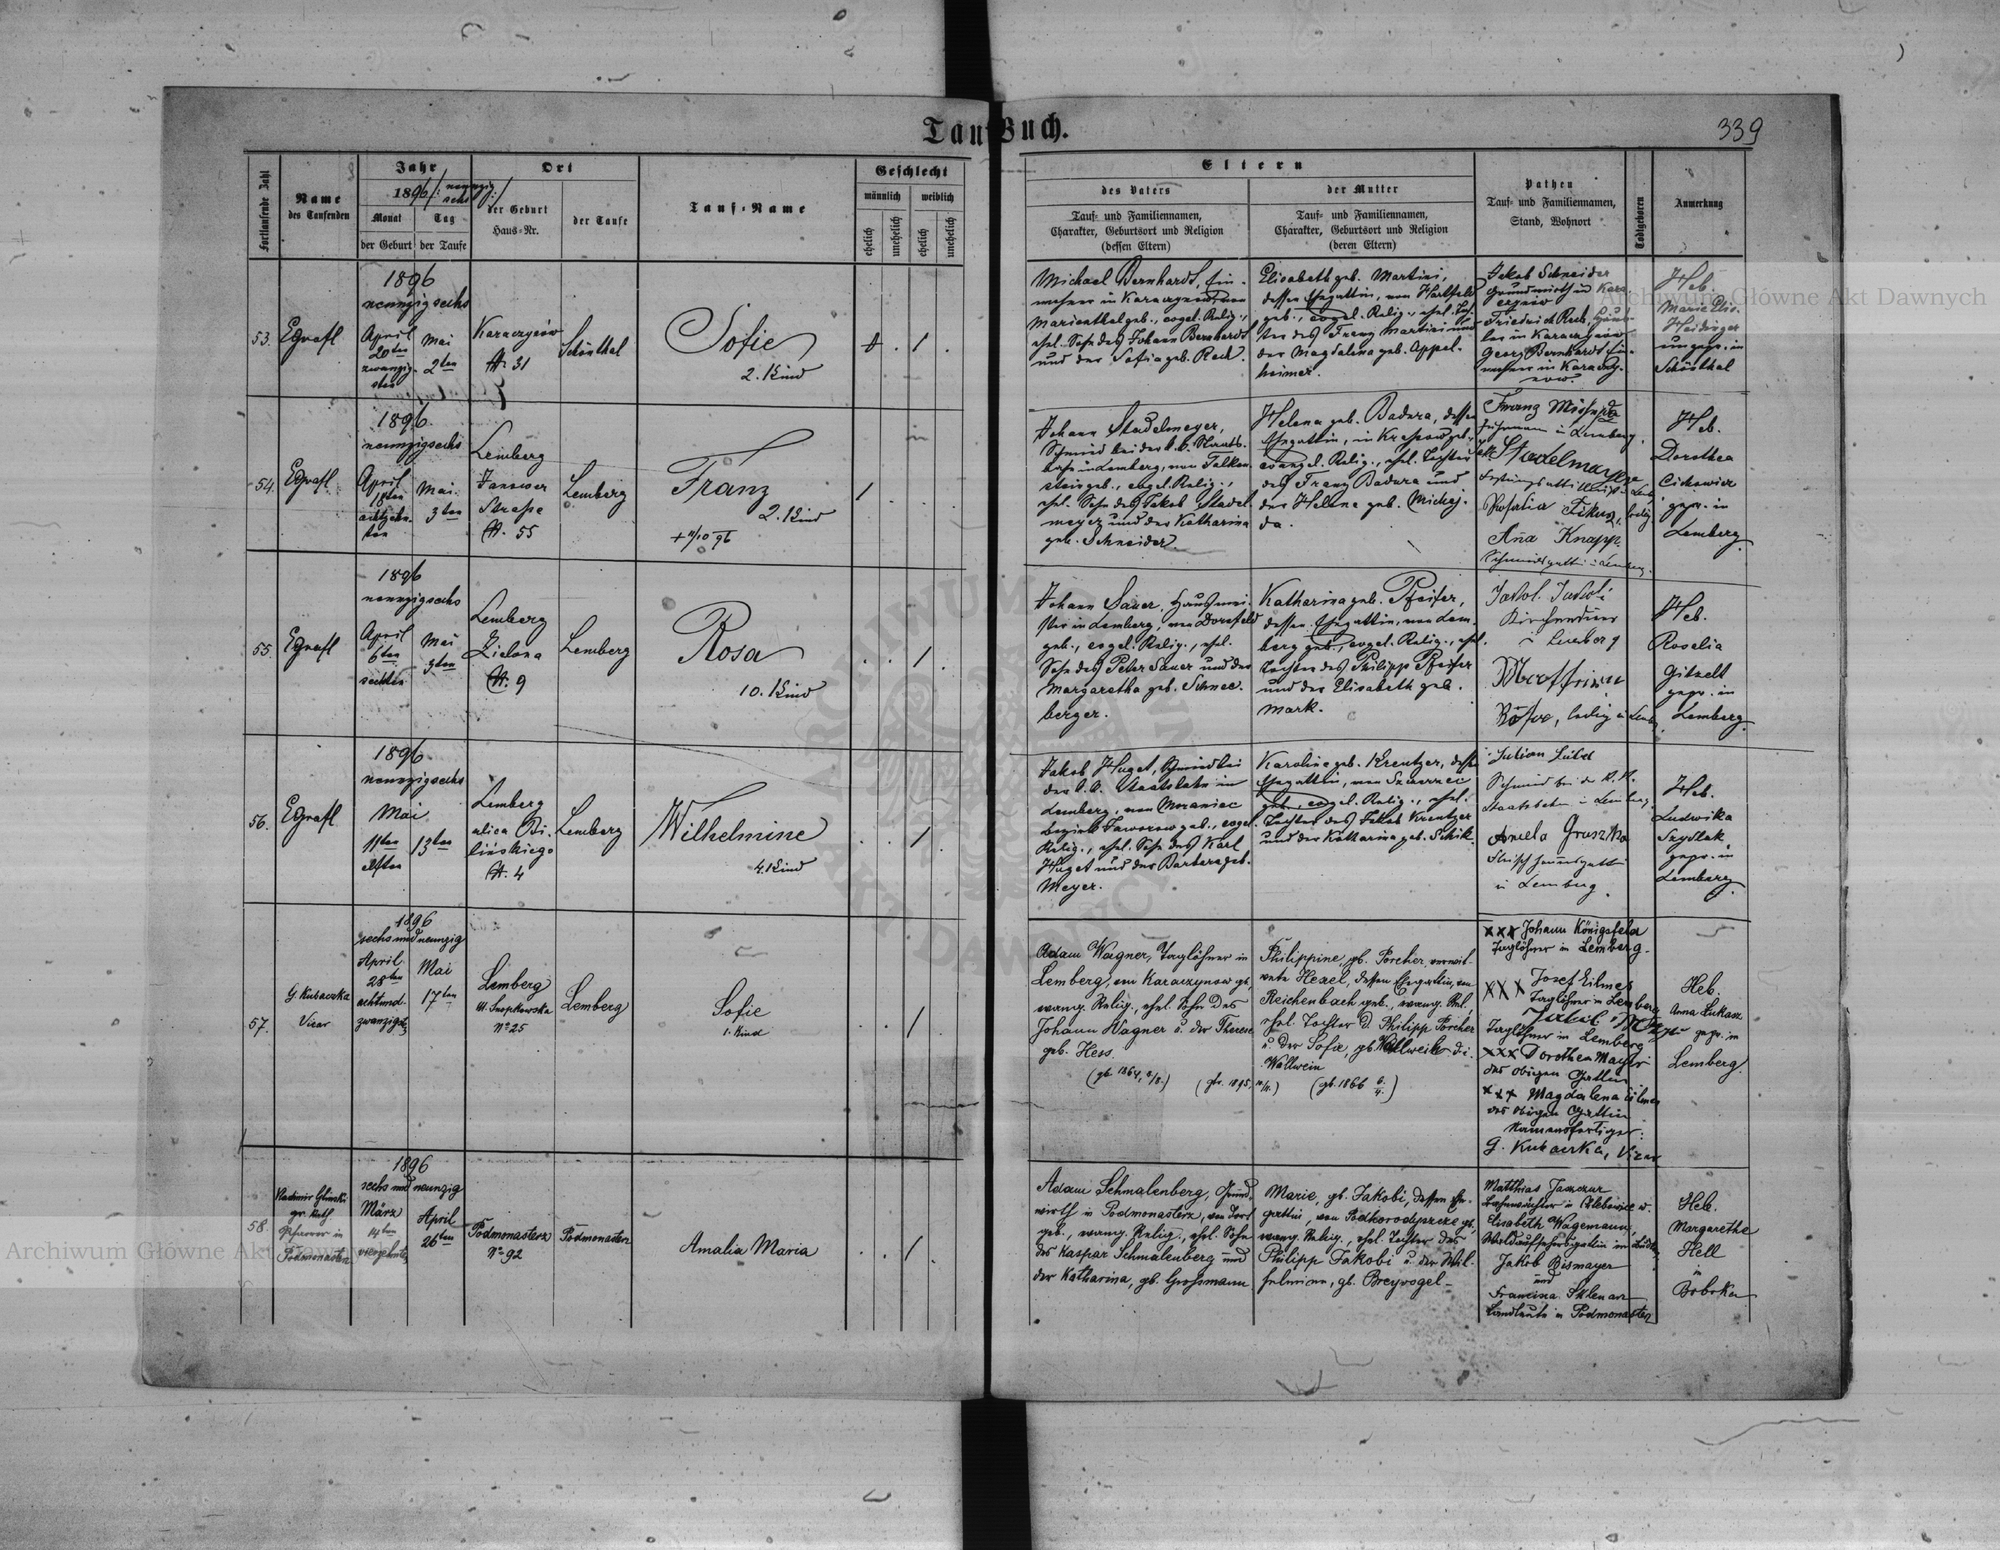 Taufbuch.
339
Fortlaufende Zahl
Name
des Taufenden
Jahr
1896 /: neunzig
sechs :/
Monat
Tag
der Geburt
der Taufe
Ort
der Geburt
Haus-Nr.
der Taufe
Tauf-Name
Geschlecht
männlich
weiblich
ehelich
unehelich
ehelich
unehelich
Eltern
des Vaters
Tauf- und Familiennamen,
Charakter, Geburtsort und Religion
(dessen Eltern)
der Mutter
Tauf- und Familiennamen,
Charakter, Geburtsort und Religion
(deren Eltern)
Pathen
Tauf- und Familiennamen,
Stand, Wohnort
Todtgeboren
Anmerkung
53.
1896
neunzigsechs
April
20ten
zwanzig-
sten
Mai
2ten
Karaczynów
N. 31
Schönthal
Sofie
2. Kind
1
Michael Bernhardt, Ein-
wohner in Karaczynow, von
Marienthal geb., evgel. Relig.,
ehel. Sohn des Johann Bernhardt
und der Sofia geb. Rech.
Elisabeth geb. Martini,
dessen Ehegattin, von Hartfeld
geb., evgel. Relig., ehel. Toch-
ter des Franz Martini und
der Magdalena geb. Appel-
heimer.
Jakob Schneider
Grundwirth in Kara-
czynow
Friedrich Rech,
in Karaczynow
Georg Bernhardt Ein-
wohner in Karaczy-
now.
Heb.
Marie Elis.
Heidinger
ungepr. in
Schönthal
54.
1896
neunzigsechs
April
18ten
achtzehn-
ten
Mai
3ten
Lemberg
Janower
Straße
N. 55
Lemberg
Franz
2. Kind
+ 11/10 96
1
Johann Stadelmeyer,
Schmied bei der k.k. Staats-
bahn in Lemberg, von Falken-
stein geb., evgel. Relig.,
ehel. Sohn des Jakob Stadel-
meyer und der Katharina
geb. Schneider
Helena geb. Badura, dessen
Ehegattin, in geb.,
evangel. Relig., ehel. Tochter
des Franz Badura und
der Helena geb. Michej-
da.
Franz
in Lemberg.
Stadelmayer
Rosalia Fikus, ledig
Ana Knapp
Schmiedsgattin in Lemberg.
Heb.
Dorothea
Cichowicz
gepr. in
Lemberg.
55.
1896
neunzigsechs
April
6ten
sechsten
Mai
9ten
Lemberg
Zielona
N. 9
Lemberg
Rosa
10. Kind
1
Johann Sauer, Hausmei-
ster in Lemberg, von Dornfeld
geb., evgel. Relig., ehel.
Sohn des Peter Sauer und der
Margaretha geb. Schnee-
berger.
Katharina geb. Pfeifer,
dessen Ehegattin, von Lem-
berg geb., evgel. Relig., ehel.
Tochter des Philipp Pfeifer
und der Elisabeth geb.
Mark.
Kirchendiener
in Lemberg
ledig in Lemberg
Heb.
Roselia
Gitzelt
gepr. in
Lemberg.
56.
1896
neunzigsechs
Mai
11ten
elften
13ten
Lemberg
ulica Bi-
lińskiego
N. 4
Lemberg
Wilhelmine
4. Kind
1
Jakob Huget, Schmied bei
der k.k. Staatsbahn in
Lemberg, von Moraniec
bezirk Jaworow geb., evgel.
Relig., ehel. Sohn des Karl
Huget und der Barbara geb.
Meyer.
Karoline geb. Kreutzer, dessen
Ehegattin, von
geb., evgel. Relig., ehel.
Tochter des Jakob Kreutzer
und der Katharina geb. Schik.
Julian
Schmied bei der k.k.
Staatsbahn in Lemberg.
Amela Gruszka
in Lemberg.
Heb.
Ludwika
Szydlak,
gepr. in
Lemberg.
57.
G. Kubaczka
Vicar
1896
sechs und neunzig
April
28ten
achtund-
zwanzigst.
Mai
17ten
Lemberg
Ul. Snopkowska
No 25
Lemberg
Sofie
1. Kind
1
Adam Wagner, Taglöhner in
Lemberg, von Karaczynow gb.,
evang. Relig., ehel. Sohn des
Johann Wagner u. der Therese
geb. Hess.
(gb. 1864, 2/8.)
Philippine, gb. Porcher, verwit-
wete Hexel, dessen Ehegattin, von
Reichenbach geb., evang. Rel.
ehel. Tochter d. Philipp Porcher
u. der Sofie, gb. Wallweiler d.i.
Wollwein
(gb. 1866 6/4.)
xxx Johann Königsfeld
Taglöhner in Lemberg.
xxx Josef Eilmes
Taglöhner in Lemberg
Taglöhner in Lemberg
xxx Dorothea Mayer
des obigen Gattin
xxx Magdalena Eilmes
des obigen Gattin
Namensfertiger:
G. Kubaczka, Vicar
Heb.
Anna Łukasz
gepr. in
Lemberg.
58.
Vladimir Glinski
gr. kath.
Pfarrer in
Podmonasterz
1896
sechs und neunzig
März
14ten
vierzehnten
April
26ten
Podmonasterz
No 92
Podmonasterz
Amalia Maria
1
Adam Schmalenberg, Grund-
wirth in Podmonasterz, von dort
geb., evang. Relig., ehel. Sohn
des Kaspar Schmalenberg und
der Katharina, gb. Grossmann
Marie, gb. Jakobi, dessen Ehe-
gattin, von gb.,
evang. Relig., ehel. Tochter des
Philipp Jakobi u. der Wil-
helmine, gb. Breyvogel.
Matthias
Bahnwächter in Chlebowice w.
Elisabeth Wagemann,
Waldaufsehersgattin in
Jakob Bismayer
und
Francisca Sklenarz
Landleute in Podmonasterz
Heb.
Margarethe
Hell
in
Bobrka
Archiwum Główne Akt Dawnych
Archiwum Główne Akt Dawnych